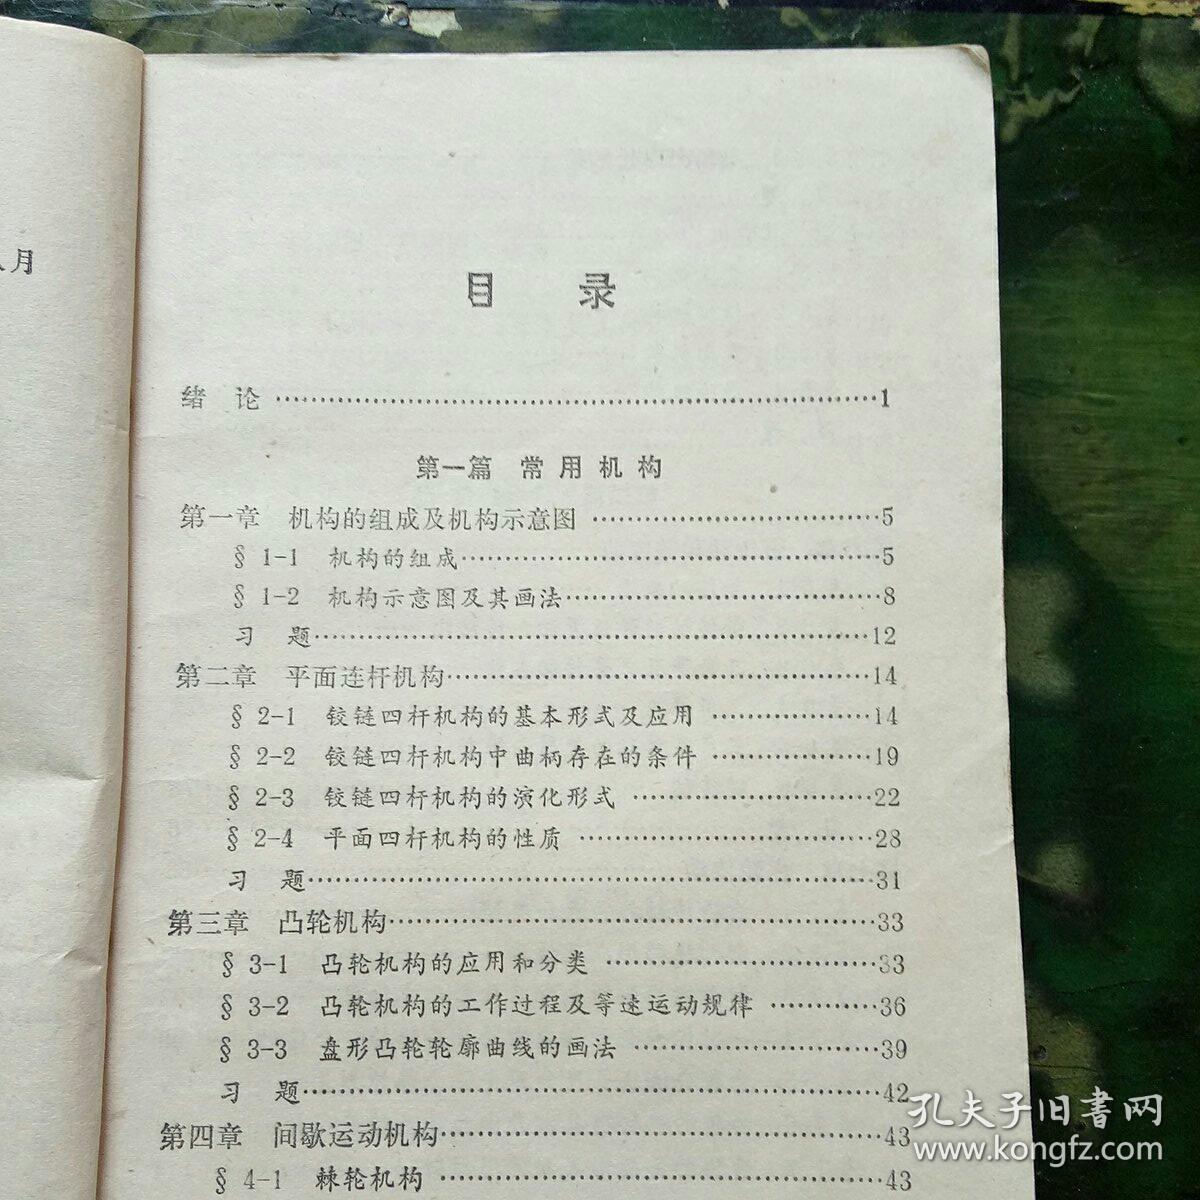 月
目 录
绪 论 …………………………………………………1
第一篇 常用机构
第一章 机构的组成及机构示意图 ……………………5
§ 1-1 机构的组成……………………………………5
§ 1-2 机构示意图及其画法…………………………8
习 题……………………………………………………12
第二章 平面连杆机构…………………………………14
§ 2-1 铰链四杆机构的基本形式及应用 ……………14
§ 2-2 铰链四杆机构中曲柄存在的条件 ……………19
§ 2-3 铰链四杆机构的演化形式 ……………………22
§ 2-4 平面四杆机构的性质 …………………………28
习 题……………………………………………………31
第三章 凸轮机构………………………………………33
§ 3-1 凸轮机构的应用和分类 ………………………33
§ 3-2 凸轮机构的工作过程及等速运动规律 ………36
§ 3-3 盘形凸轮轮廓曲线的画法 ……………………39
习 题……………………………………………………42
第四章 间歇运动机构…………………………………43
§ 4-1 棘轮机构 ………………………………………43
孔夫子旧书网
www.kongfz.com